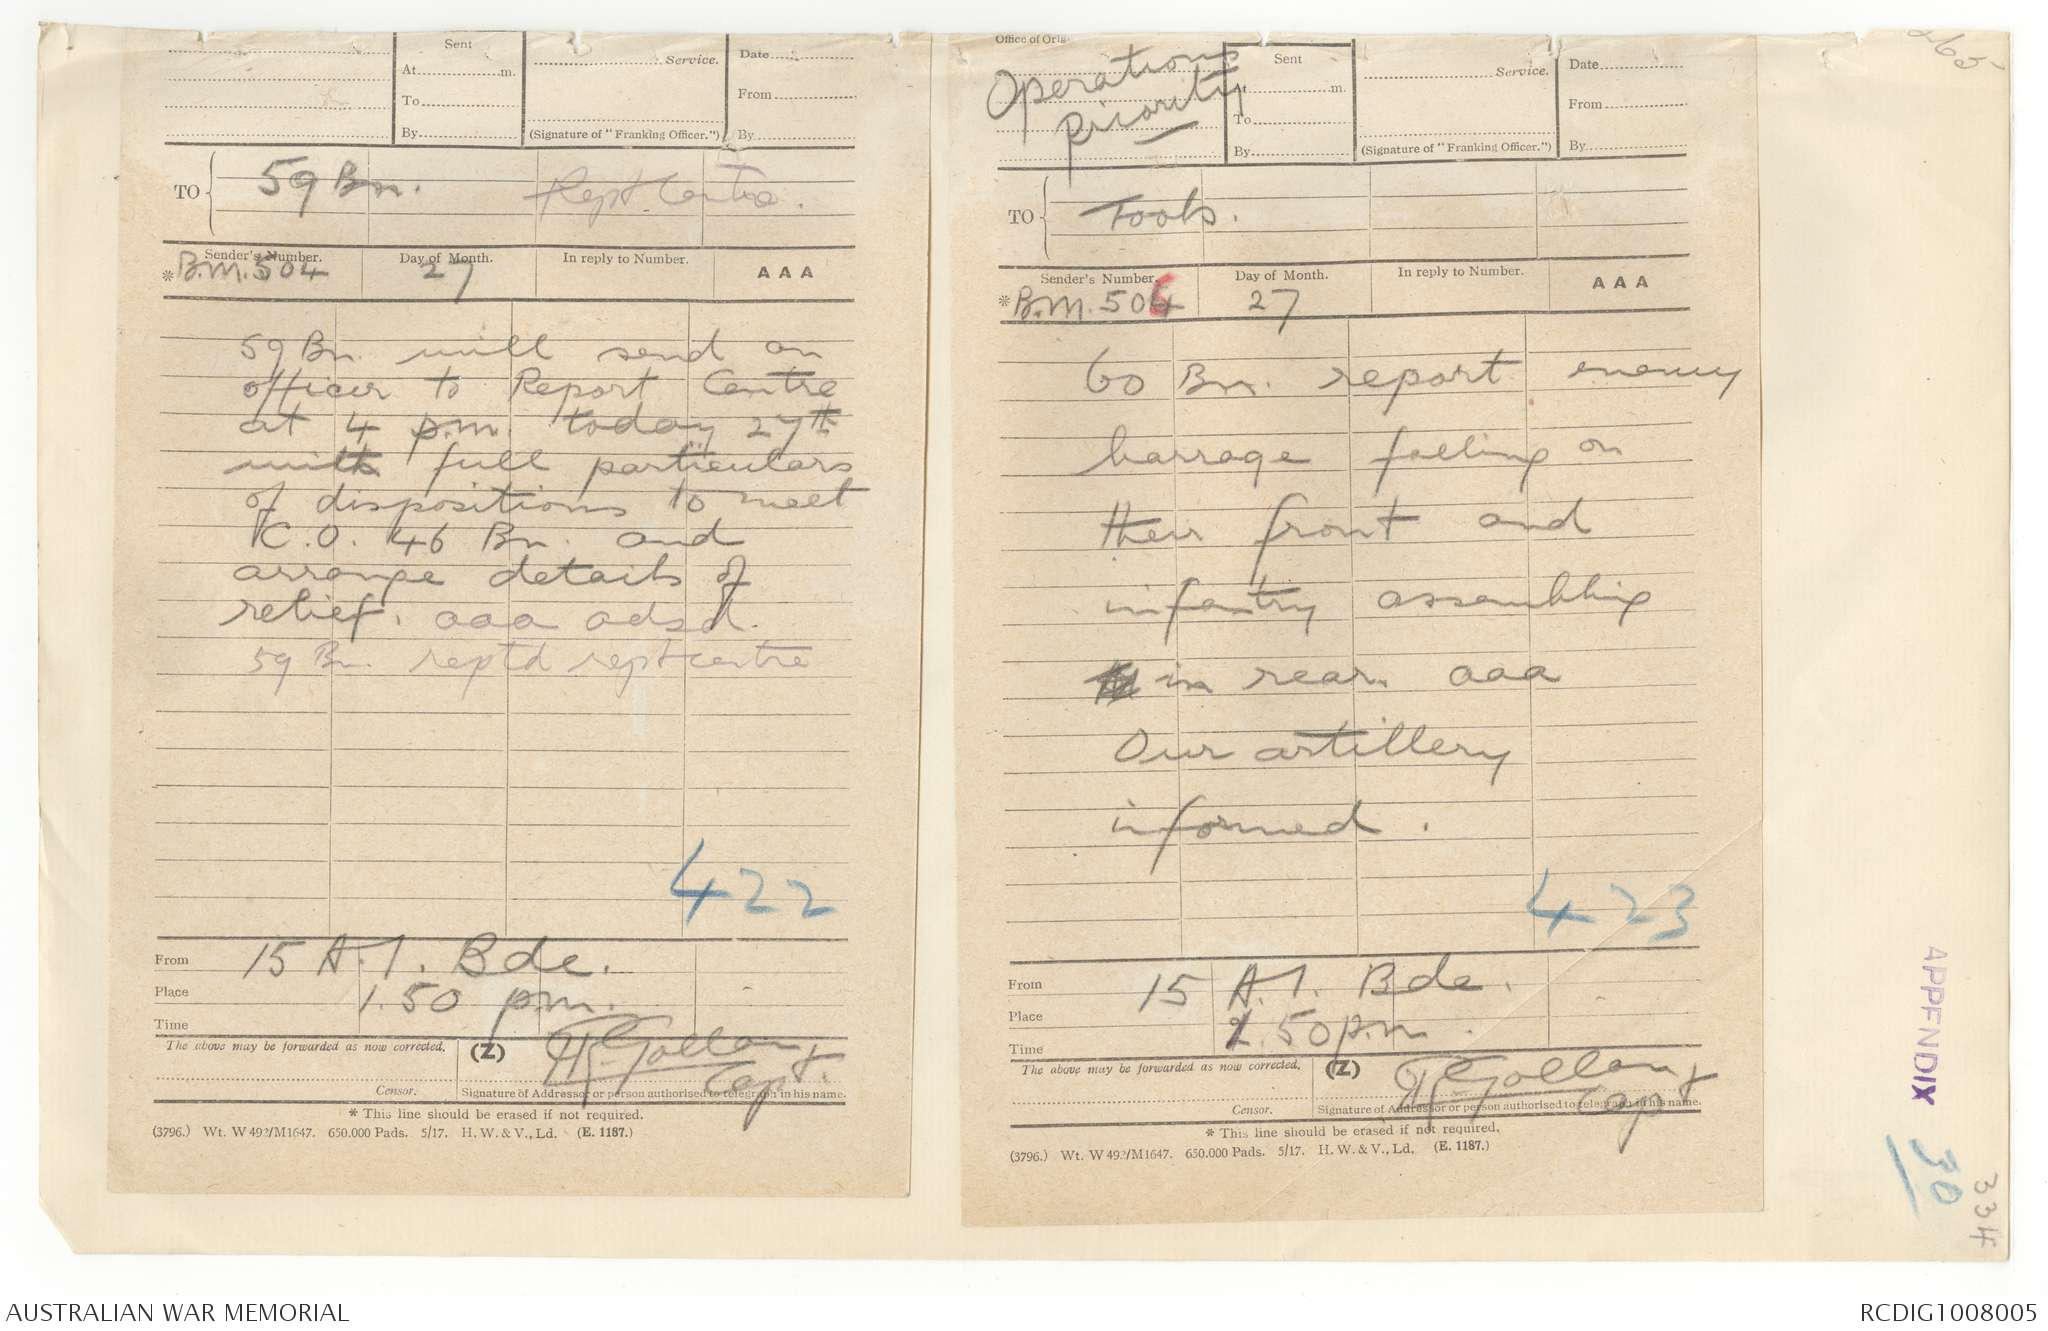 Sent
At m.
To
By
Service.
(Signature of "Franking Officer.")
Date
From
By
TO
59 Bn. Rept Centre.
Sender's Number. Day of Month. In reply to Number. AAA
* B.M. 504 27
59 Bn. will send an
officer to Report Centre
at 4 p.m. today 27th
with full particulars
of dispositions to meet
C.O. 46 Bn. and
arrange details of
relief. aaa adsd.
59 Bn. reptd rept centre
422
From 15 A.I. Bde.
Place
1.50 p.m.
Time
The above may be forwarded as now corrected. (Z)
Capt.
Censor. Signature of Addressor or person authorised to telegraph in his name.
* This line should be erased if not required.
(3796.) Wt. W 492/M1647. 650,000 Pads. 5/17. H. W. & V., Ld. (E. 1187.)
Office of Orig
Operations
Priority
Sent
At m.
To
By
Service.
(Signature of "Franking Officer.")
Date
From
By
TO
Tools.
Sender's Number. Day of Month. In reply to Number. AAA
* B.M. 506 27
60 Bn. report enemy
barrage falling on
their front and
infantry assembling
in rear. aaa
Our artillery
informed.
423
From 15 A.I. Bde.
Place
2.50 p.m.
Time
The above may be forwarded as now corrected. (Z)
Capt
Censor. Signature of Addressor or person authorised to telegraph in his name.
* This line should be erased if not required.
(3796.) Wt. W 492/M1647. 650,000 Pads. 5/17. H. W. & V., Ld. (E. 1187.)
265
APPENDIX
30
334
AUSTRALIAN WAR MEMORIAL
RCDIG1008005